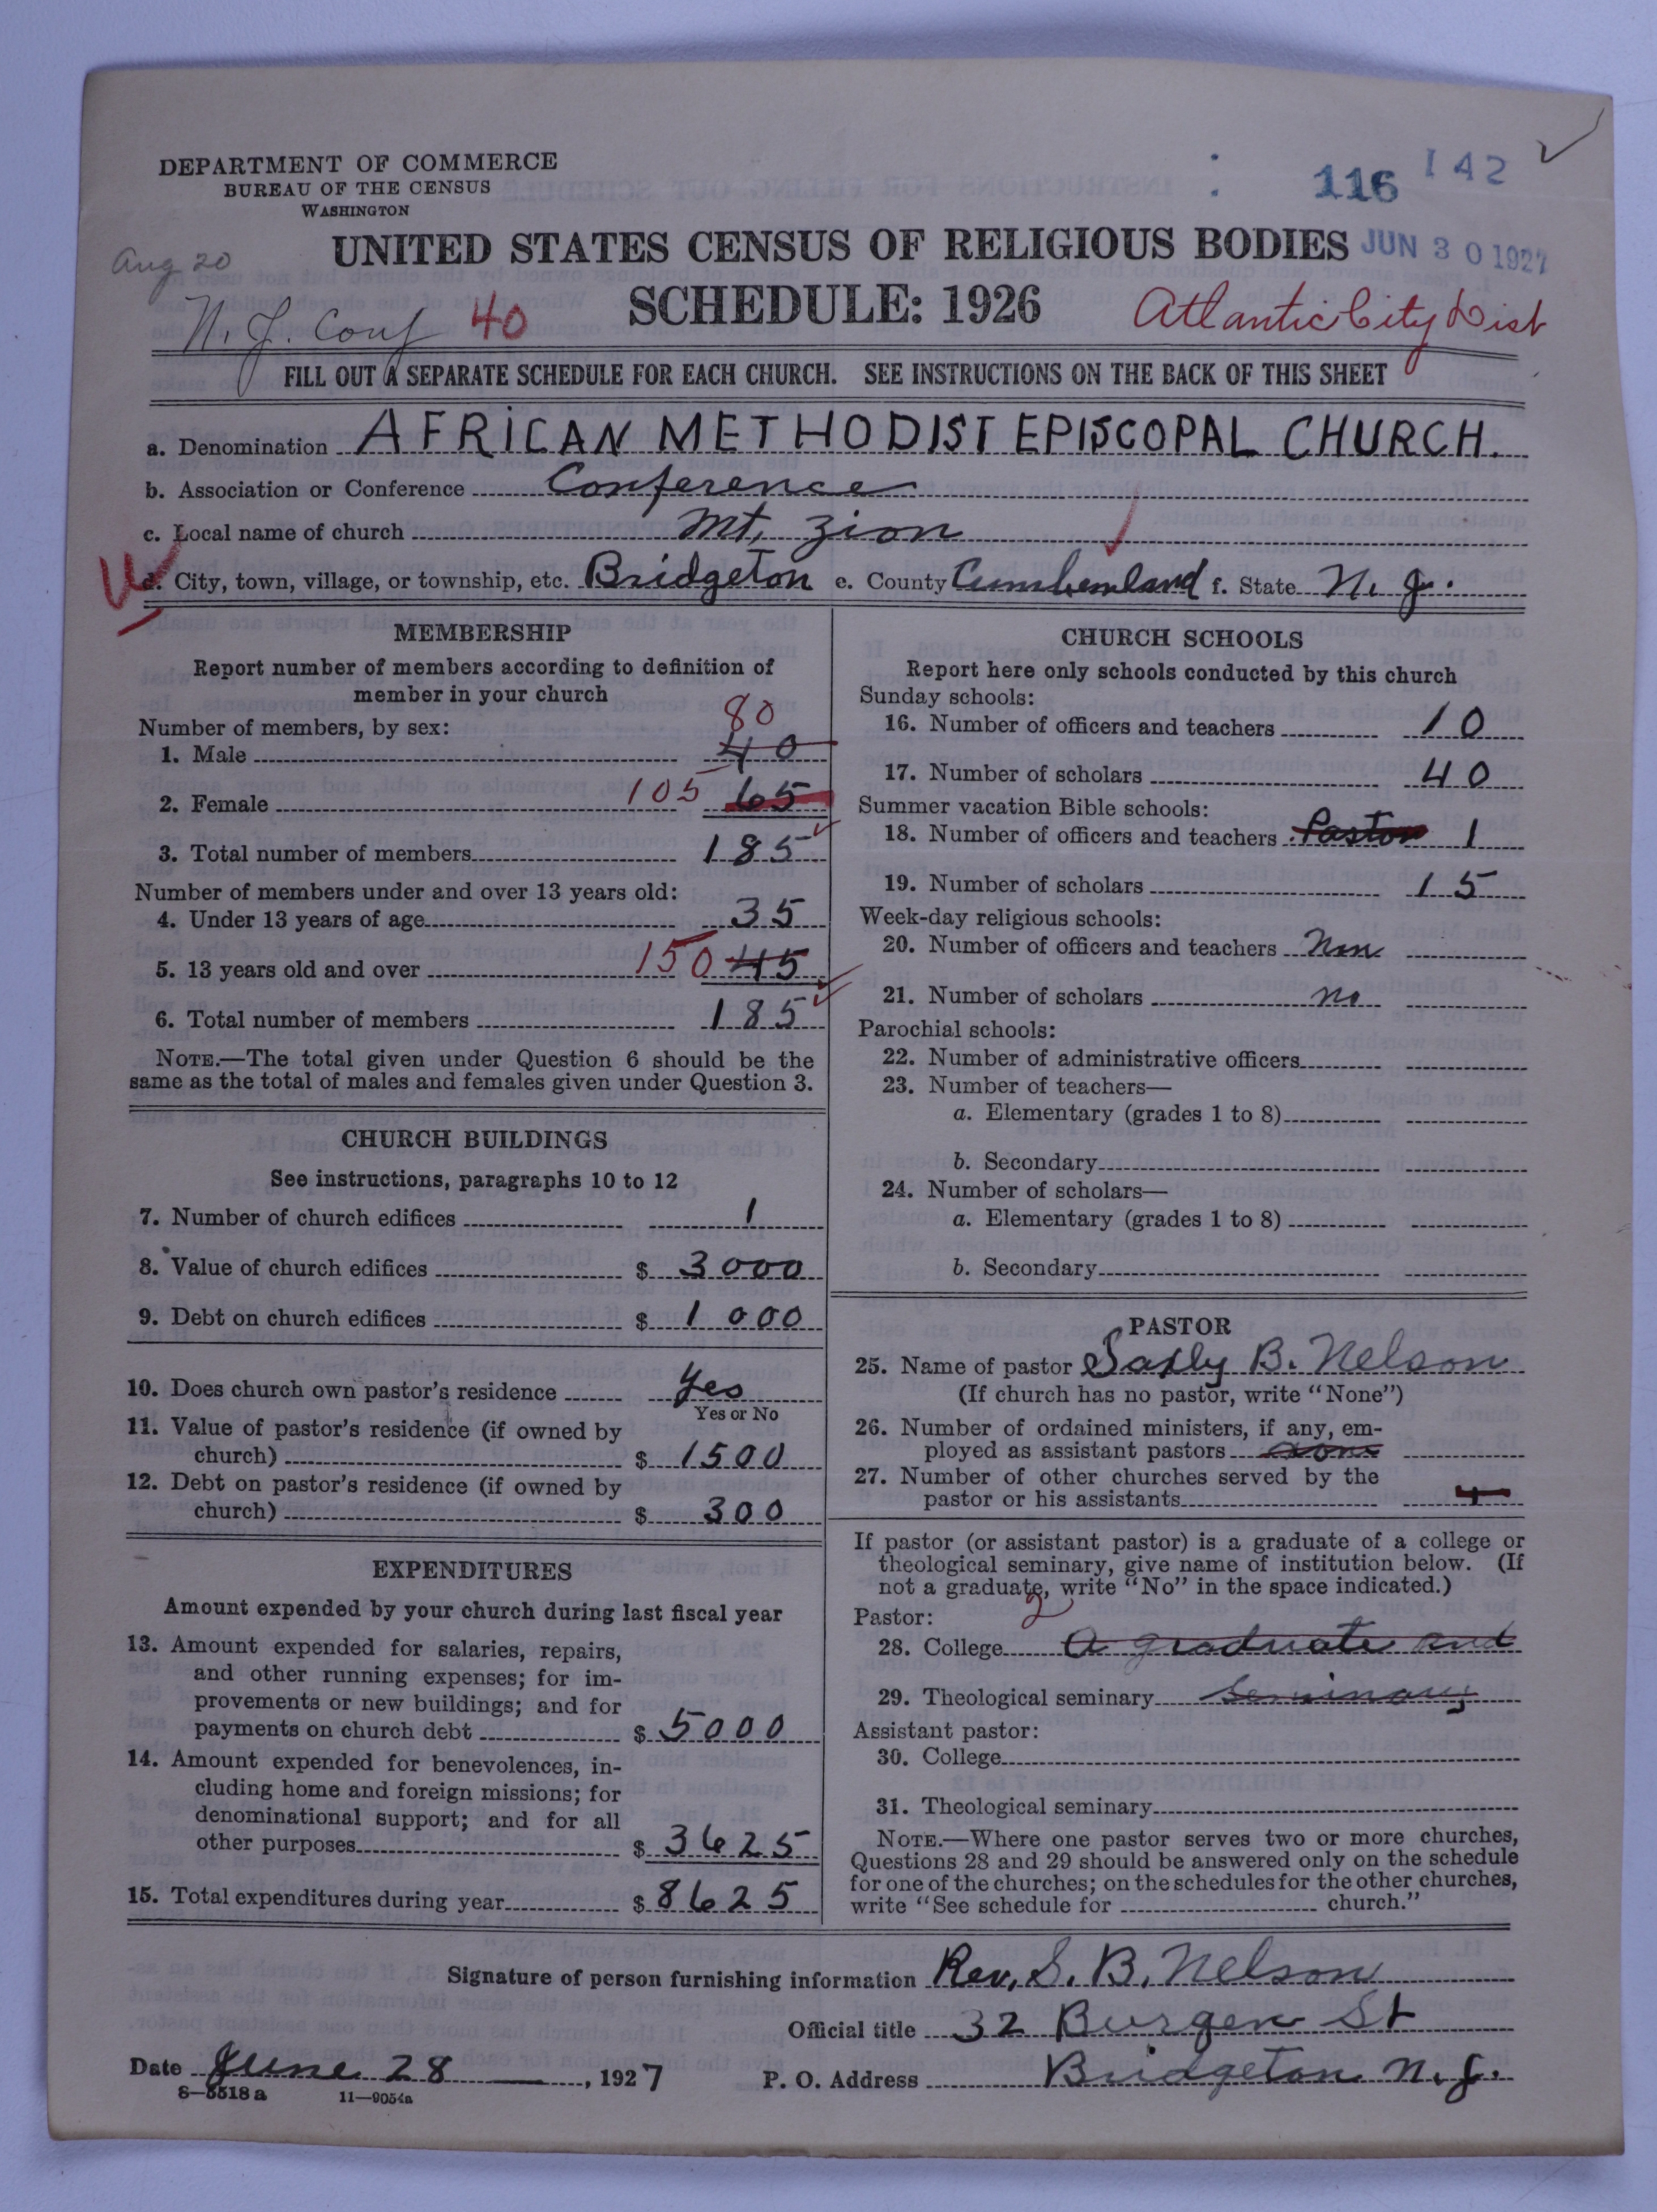 DEPARTMENT OF COMMERCE
BUREAU OF THE CENSUS
WASHINGTON
116 142
Aug 20
UNITED STATES CENSUS OF RELIGIOUS BODIES JUN 30 1927
N. J. Conf 40 SCHEDULE: 1926 Atlantic City Dist
FILL OUT A SEPARATE SCHEDULE FOR EACH CHURCH. SEE INSTRUCTIONS ON THE BACK OF THIS SHEET
a. Denomination AFRICAN METHODIST EPISCOPAL CHURCH.
b. Association or Conference Conference
c. Local name of church Mt, Zion
d. City, town, village, or township, etc. Bridgeton e. County Cumberland f. State N. J.
MEMBERSHIP
Report number of members according to definition of
member in your church
Number of members, by sex:
80
1. Male 40
2. Female 105 65
3. Total number of members 185
Number of members under and over 13 years old:
4. Under 13 years of age 35
5. 13 years old and over 150 45
6. Total number of members 185
NOTE.—The total given under Question 6 should be the
same as the total of males and females given under Question 3.
CHURCH BUILDINGS
See instructions, paragraphs 10 to 12
7. Number of church edifices 1
8. Value of church edifices $ 3000
9. Debt on church edifices $ 1000
10. Does church own pastor's residence Yes
Yes or No
11. Value of pastor's residence (if owned by
church) $ 1500
12. Debt on pastor's residence (if owned by
church) $ 300
EXPENDITURES
Amount expended by your church during last fiscal year
13. Amount expended for salaries, repairs,
and other running expenses; for im-
provements or new buildings; and for
payments on church debt $ 5000
14. Amount expended for benevolences, in-
cluding home and foreign missions; for
denominational support; and for all
other purposes $ 3625
15. Total expenditures during year $ 8625
CHURCH SCHOOLS
Report here only schools conducted by this church
Sunday schools:
16. Number of officers and teachers 10
17. Number of scholars 40
Summer vacation Bible schools:
18. Number of officers and teachers Pastor 1
19. Number of scholars 15
Week-day religious schools:
20. Number of officers and teachers
21. Number of scholars no
Parochial schools:
22. Number of administrative officers
23. Number of teachers—
a. Elementary (grades 1 to 8)
b. Secondary
24. Number of scholars—
a. Elementary (grades 1 to 8)
b. Secondary
PASTOR
25. Name of pastor B. Nelson
(If church has no pastor, write "None")
26. Number of ordained ministers, if any, em-
ployed as assistant pastors
27. Number of other churches served by the
pastor or his assistants
If pastor (or assistant pastor) is a graduate of a college or
theological seminary, give name of institution below. (If
not a graduate, write "No" in the space indicated.)
Pastor: 2
28. College A graduate and
29. Theological seminary Seminary
Assistant pastor:
30. College
31. Theological seminary
NOTE.—Where one pastor serves two or more churches,
Questions 28 and 29 should be answered only on the schedule
for one of the churches; on the schedules for the other churches,
write "See schedule for church."
Signature of person furnishing information Rev, S. B. Nelson
Official title 32 Burgen St
Date June 28, 1927 P. O. Address Bridgeton N. J.
8—8518 a 11—9054a